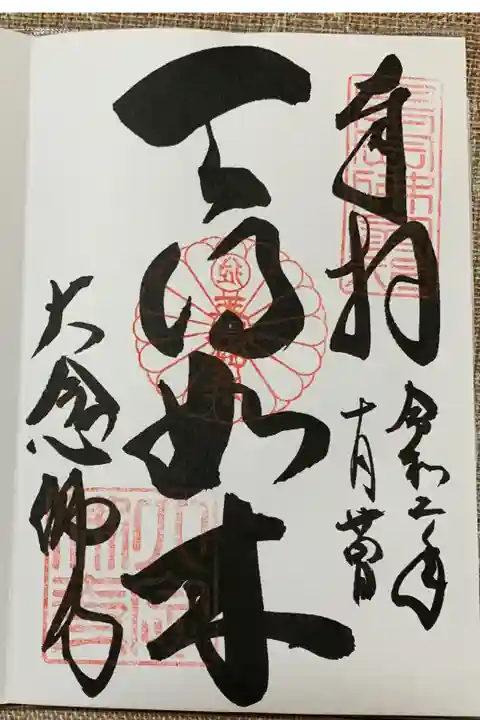 奉拝
令和二年
十月
天得如来
大念佛寺